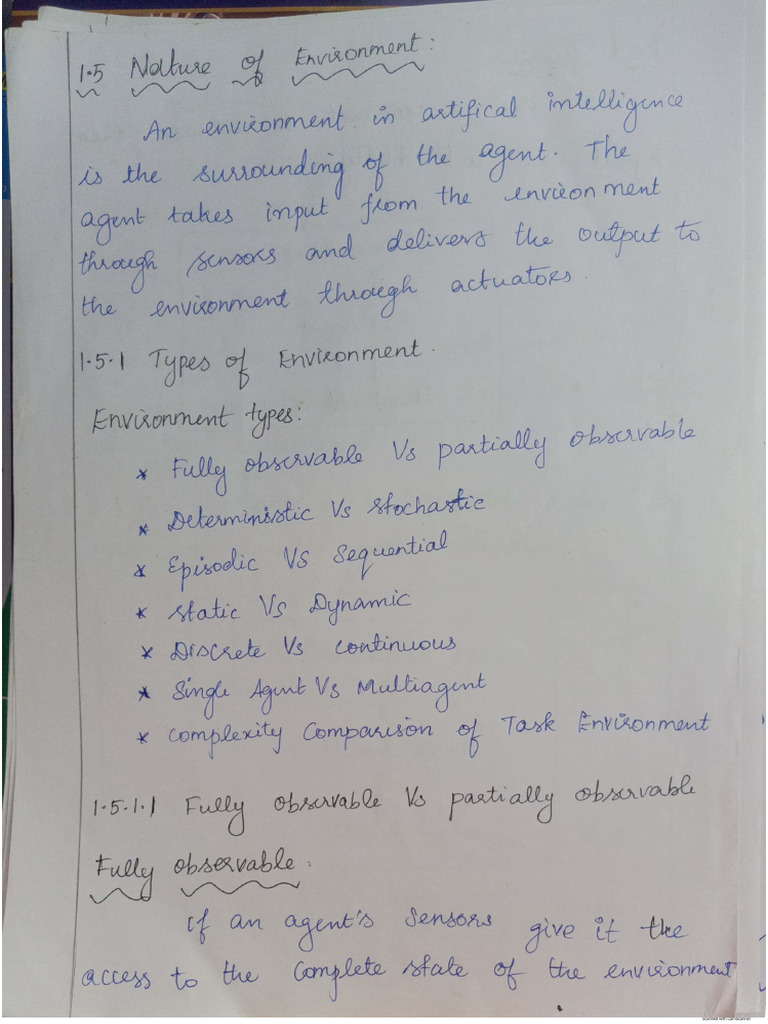 1.5 Nature of Environment:
An environment in artifical intelligence
is the surrounding of the agent. The
agent takes input from the environment
through sensors and delivers the output to
the environment through actuators.
1.5.1 Types of Environment.
Environment types:
* Fully observable Vs partially observable
* Deterministic Vs stochastic
* Episodic VS Sequential
* Static Vs Dynamic
* Discrete Vs continuous
* Single Agent Vs Multiagent
* Complexity Comparison of Task Environment
1.5.1.1 Fully observable Vs partially observable
Fully observable:
If an agent's sensors give it the
access to the complete state of the environment